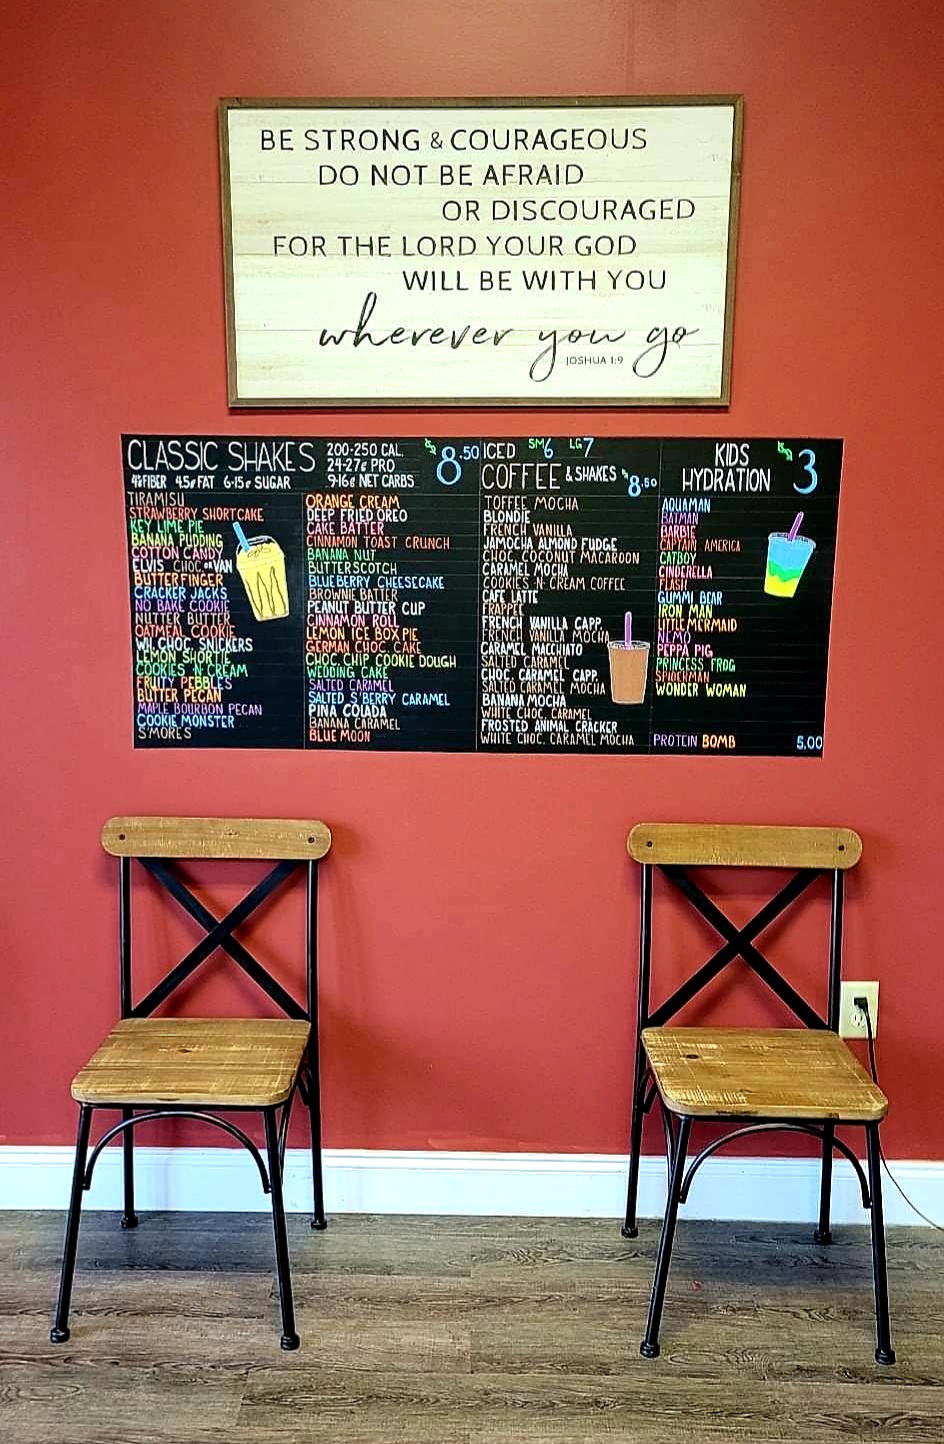 BE STRONG & COURAGEOUS
DO NOT BE AFRAID
OR DISCOURAGED
FOR THE LORD YOUR GOD
WILL BE WITH YOU
wherever you go
JOSHUA 1:9
CLASSIC SHAKES
4g FIBER 4.5g FAT 6-15g SUGAR
200-250 CAL.
24-27g PRO
9-16g NET CARBS
$8.50
TIRAMISU
STRAWBERRY SHORTCAKE
KEY LIME PIE
BANANA PUDDING
COTTON CANDY
ELVIS CHOC. OR VAN
BUTTERFINGER
CRACKER JACKS
NO BAKE COOKIE
NUTTER BUTTER
OATMEAL COOKIE
WH. CHOC. SNICKERS
LEMON SHORTIE
COOKIES 'N CREAM
FRUITY PEBBLES
BUTTER PECAN
MAPLE BOURBON PECAN
COOKIE MONSTER
S'MORES
ORANGE CREAM
DEEP FRIED OREO
CAKE BATTER
CINNAMON TOAST CRUNCH
BANANA NUT
BUTTERSCOTCH
BLUEBERRY CHEESECAKE
BROWNIE BATTER
PEANUT BUTTER CUP
CINNAMON ROLL
LEMON ICE BOX PIE
GERMAN CHOC. CAKE
CHOC. CHIP COOKIE DOUGH
WEDDING CAKE
SALTED CARAMEL
SALTED S'BERRY CARAMEL
PINA COLADA
BANANA CARAMEL
BLUE MOON
ICED SM 6 LG 7
COFFEE & SHAKES $8.50
TOFFEE MOCHA
BLONDIE
FRENCH VANILLA
JAMOCHA ALMOND FUDGE
CHOC. COCONUT MACAROON
CARAMEL MOCHA
COOKIES 'N CREAM COFFEE
CAFE LATTE
FRAPPE
FRENCH VANILLA CAPP.
FRENCH VANILLA MOCHA
CARAMEL MACCHIATO
SALTED CARAMEL
CHOC. CARAMEL CAPP.
SALTED CARAMEL MOCHA
BANANA MOCHA
WHITE CHOC. CARAMEL
FROSTED ANIMAL CRACKER
WHITE CHOC. CARAMEL MOCHA
KIDS
HYDRATION
$3
AQUAMAN
BATMAN
BARBIE
CAPTAIN AMERICA
CATBOY
CINDERELLA
FLASH
GUMMI BEAR
IRON MAN
LITTLE MERMAID
NEMO
PEPPA PIG
PRINCESS FROG
SPIDERMAN
WONDER WOMAN
PROTEIN BOMB 5.00